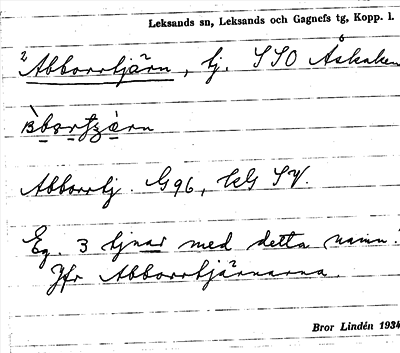 Leksands sn, Leksands och Gagnefs tg, Kopp. l.
2 Abborrtjärn, tj. SSO Åskaken
Abborrtj. G96, KG SV.
Eg. 3 tjnar med detta namn.
Jfr Abborrtjärnarna.
Bror Lindén 1934